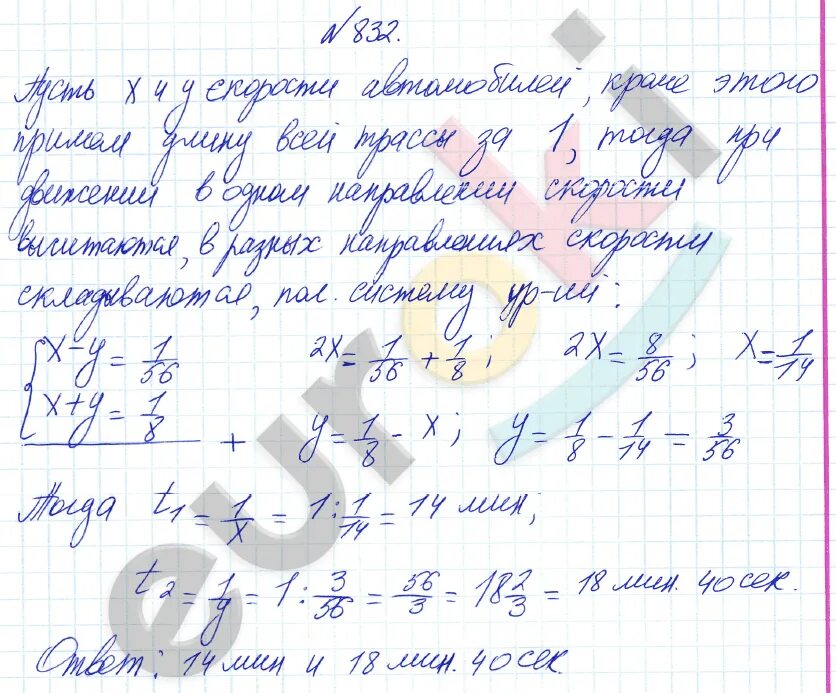 №832.
Пусть x и y скорости автомобилей, кроме этого
примем длину всей трассы за 1, тогда при
движении в одном направлении скорости
вычитаются, в разных направлениях скорости
складываются, пол. систему ур-ий:
{x-y=1/56 2x=1/56+1/8; 2x=8/56; x=1/14
x+y=1/8 + y=1/8-x; y=1/8-1/14=3/56
Тогда t1=1/x=1:1/14=14 мин;
t2=1/y=1:3/56=56/3=18 2/3=18 мин. 40 сек.
Ответ: 14 мин и 18 мин. 40 сек.
euroki